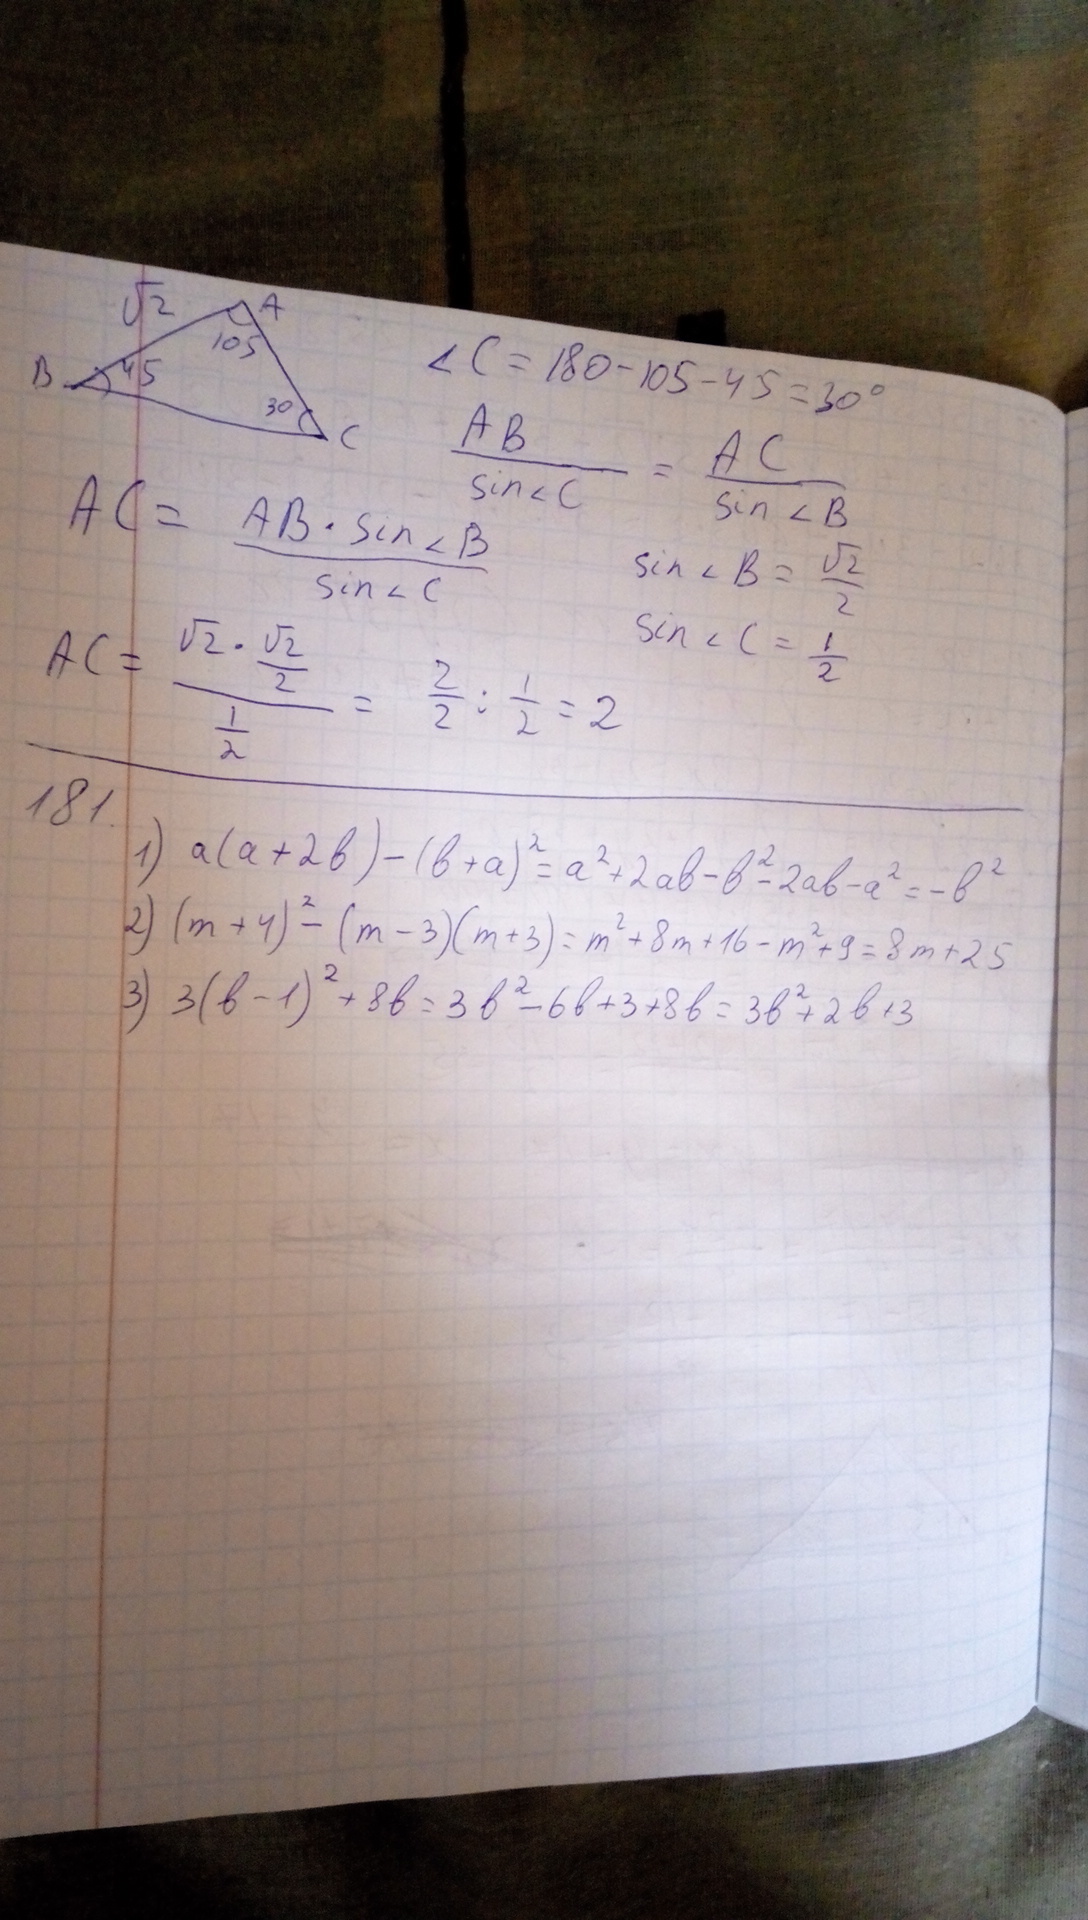 √2 A
105
B 45
30 C
∠C = 180 - 105 - 45 = 30°
AB/sin∠C = AC/sin∠B
AC = AB · sin∠B / sin∠C
sin∠B = √2/2
sin∠C = 1/2
AC = (√2 · √2/2) / (1/2) = 2/2 : 1/2 = 2
181.
1) a(a+2b) - (b+a)² = a² + 2ab - b² - 2ab - a² = -b²
2) (m+4)² - (m-3)(m+3) = m² + 8m + 16 - m² + 9 = 8m + 25
3) 3(b-1)² + 8b = 3b² - 6b + 3 + 8b = 3b² + 2b + 3